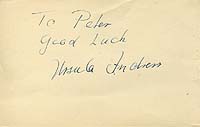 To Peter
Good Luck
Ursula Andress